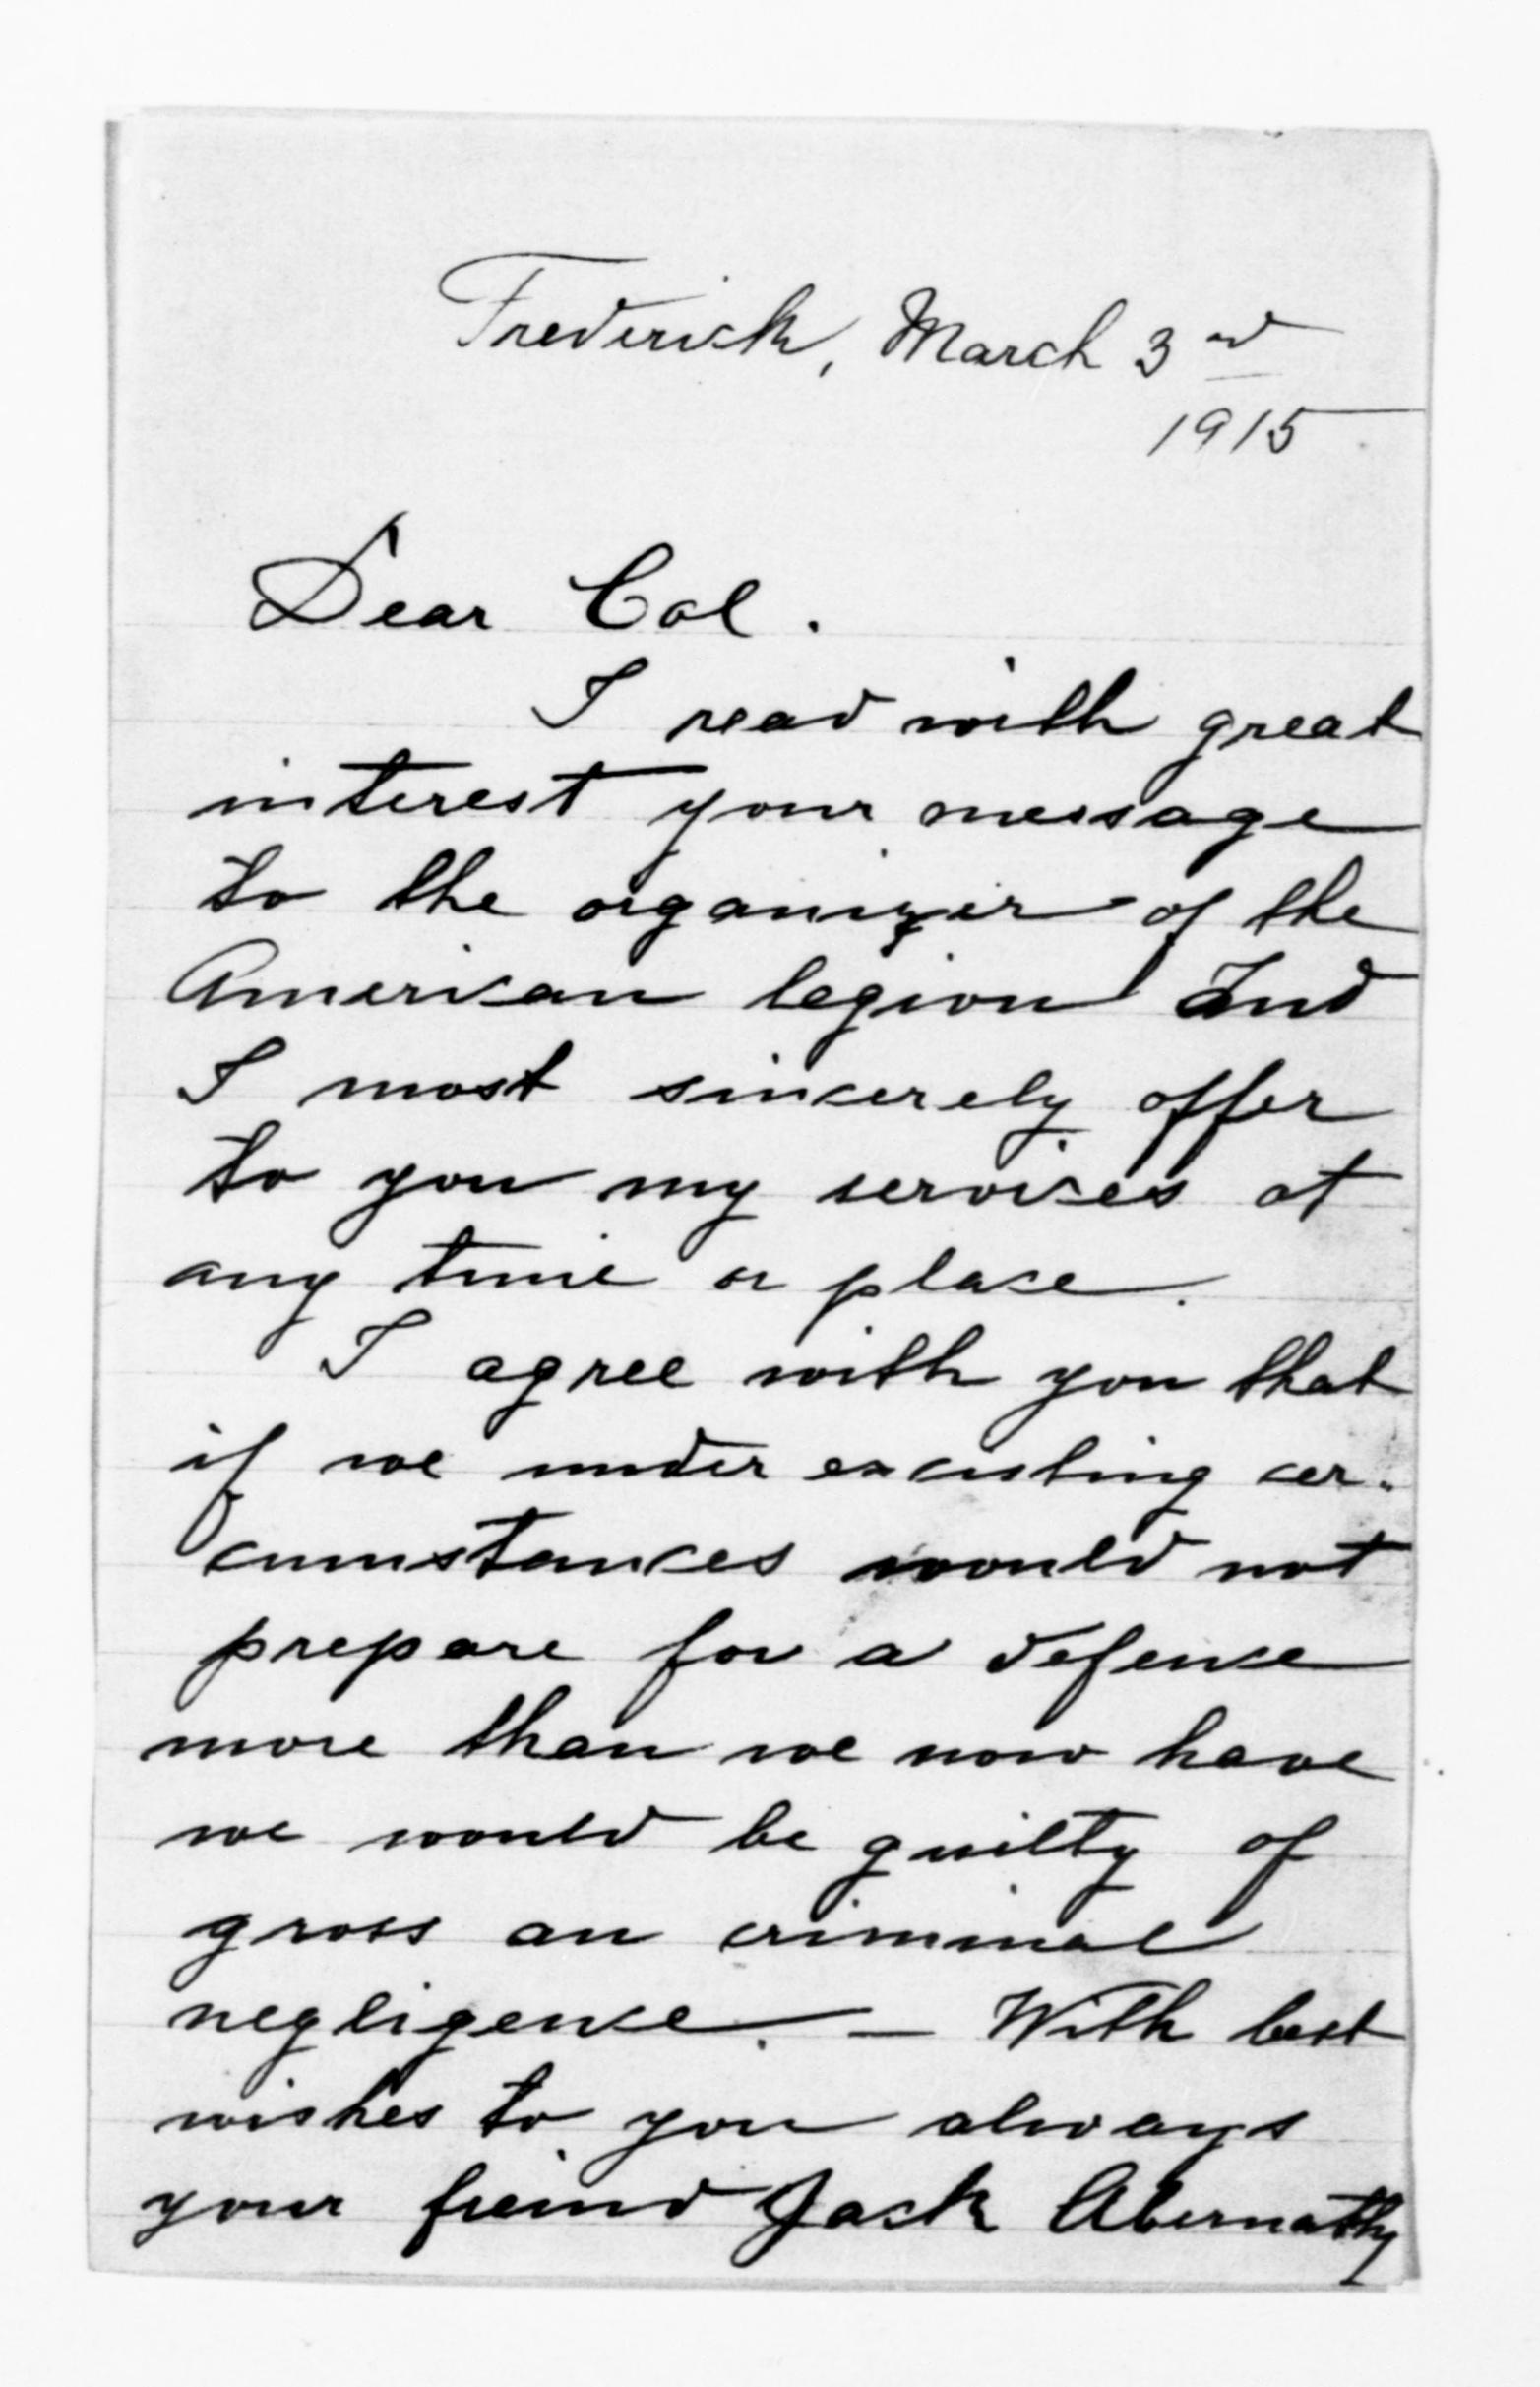 Frederick, March 3rd
1915
Dear Col.
I read with great
interest your message
to the organizer of the
American legion And
I most sincerely offer
to you my services at
any time or place.
I agree with you that
if we under excisting cer-
cumstances would not
prepare for a defense
more than we now have
we would be guilty of
gross an criminal
negligence. — With best
wishes to you always
your freind Jack Abernathy